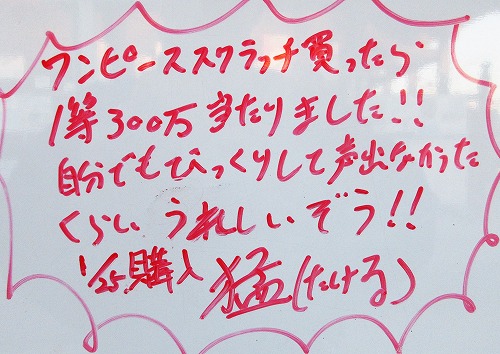 ワンピーススクラッチ買ったら
1等300万当たりました!!
自分でもびっくりして声出なかった
くらい うれしいぞう!!
1/25.購入 猛(たける)